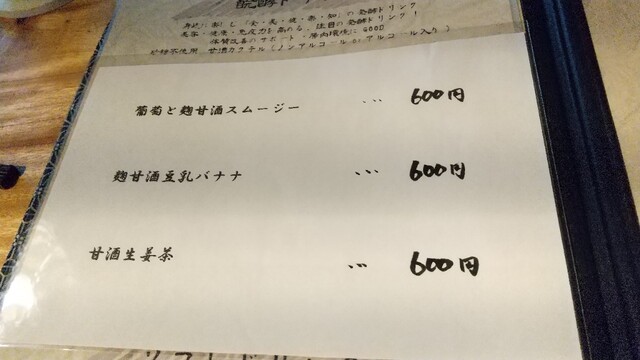 醗酵ド
美容・健康・免疫力を高める、注目の発酵ドリンク!
体質改善のサポート・腸内環境に GOOD
甘酒カクテル(ノンアルコール or アルコール入り)
葡萄と麹甘酒スムージー … 600円
麹甘酒豆乳バナナ … 600円
甘酒生姜茶 … 600円